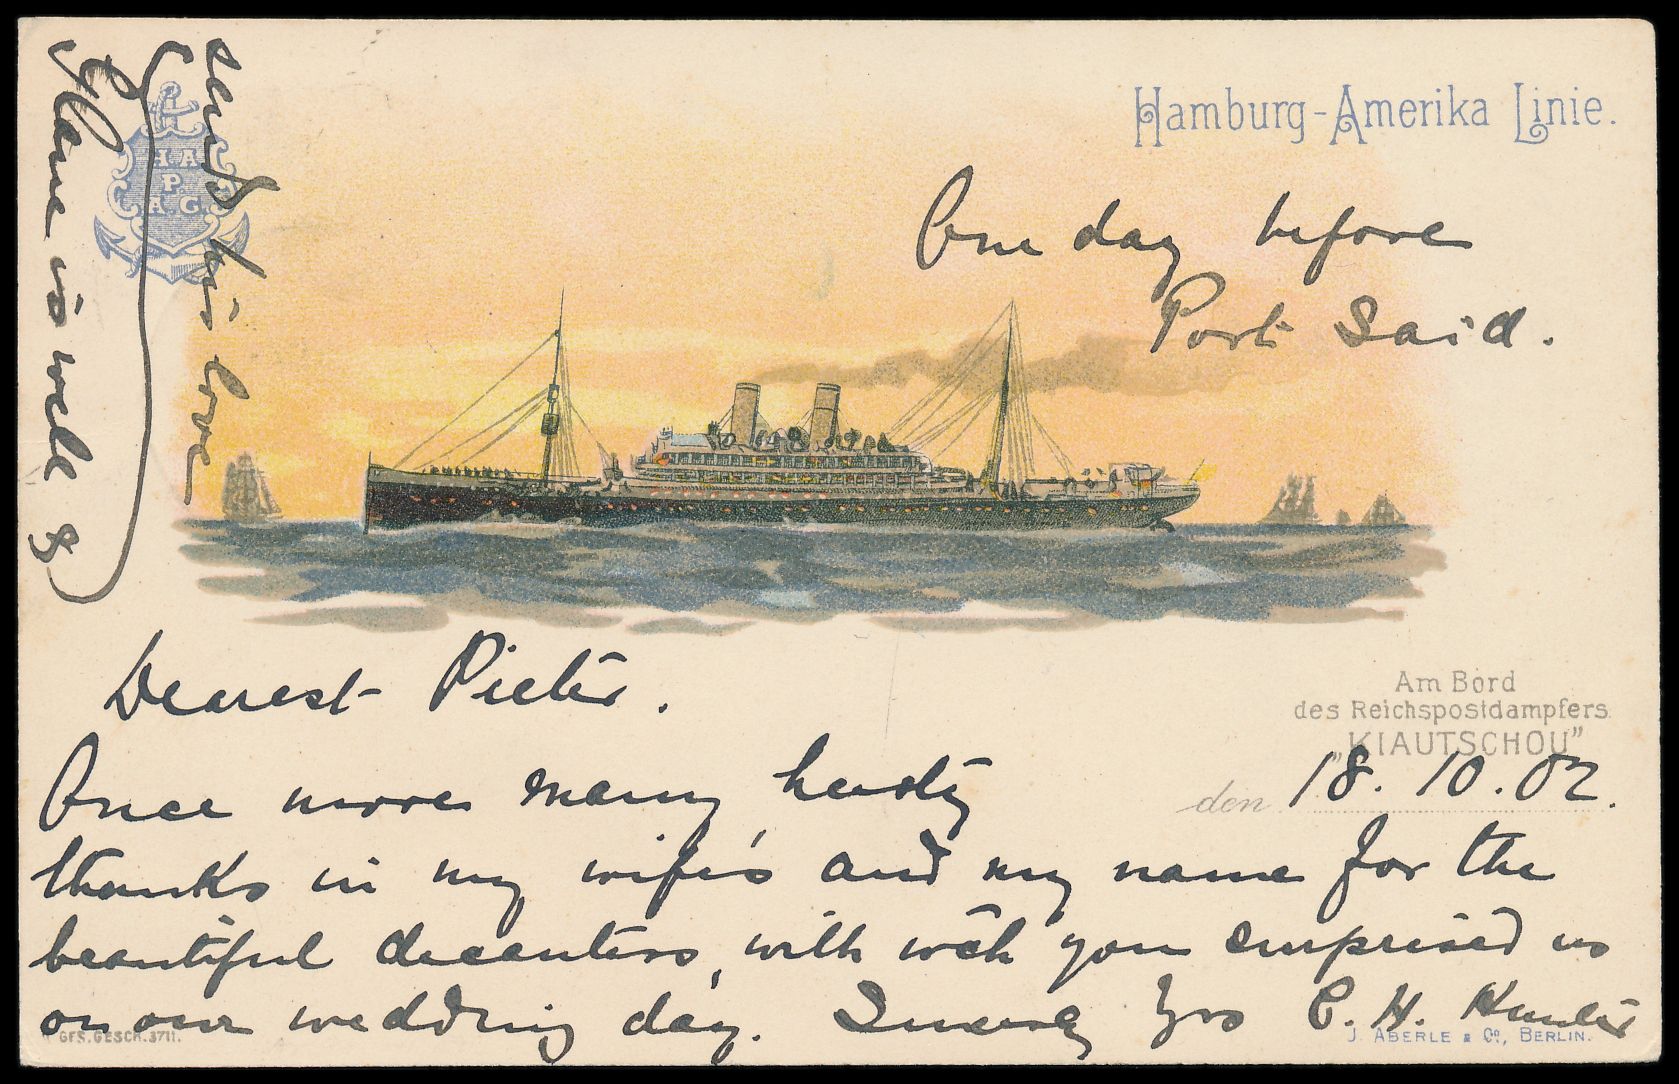 Hamburg-Amerika Linie.
H. A.
P.
A. G.
One day before
Port Said.
Am Bord
des Reichspostdampfers
„KIAUTSCHOU"
den 18. 10. 02.
Dearest Pieter.
Once more many hearty
thanks in my wife's and my name for the
beautiful decanters, with wch you surprised us
on our wedding day. Sincerely Yrs C. H.
is well &
sends his love
GES. GESCH. 3711.
J. ABERLE & Co., BERLIN.